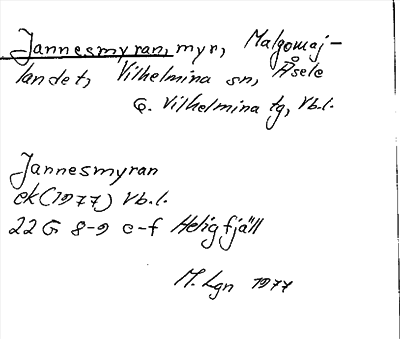 Jannesmyran, myr, Malgomaj-
landet, Vilhelmina sn, Åsele
G. Vilhelmina tg, Vb.l.
Jannesmyran
ek (1977) Vb.l.
22 G 8-9 e-f Heligfjäll
M. Lgn 1977